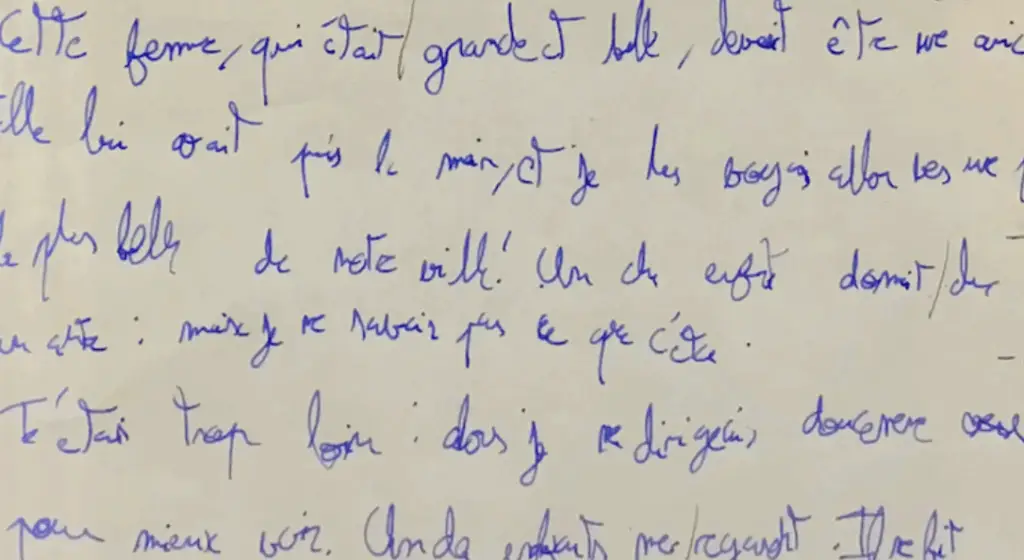 Cette femme, qui était / grande et belle, devait être une
Elle lui avait pris la main, et je les voyais aller vers une
plus belle de notre ville! Un des enfants donnait / des
: mais je ne savais pas ce que c'était.
J'étais trop loin : alors je me dirigeais doucement
pour mieux voir. Un des enfants me / regardait. Il me fit